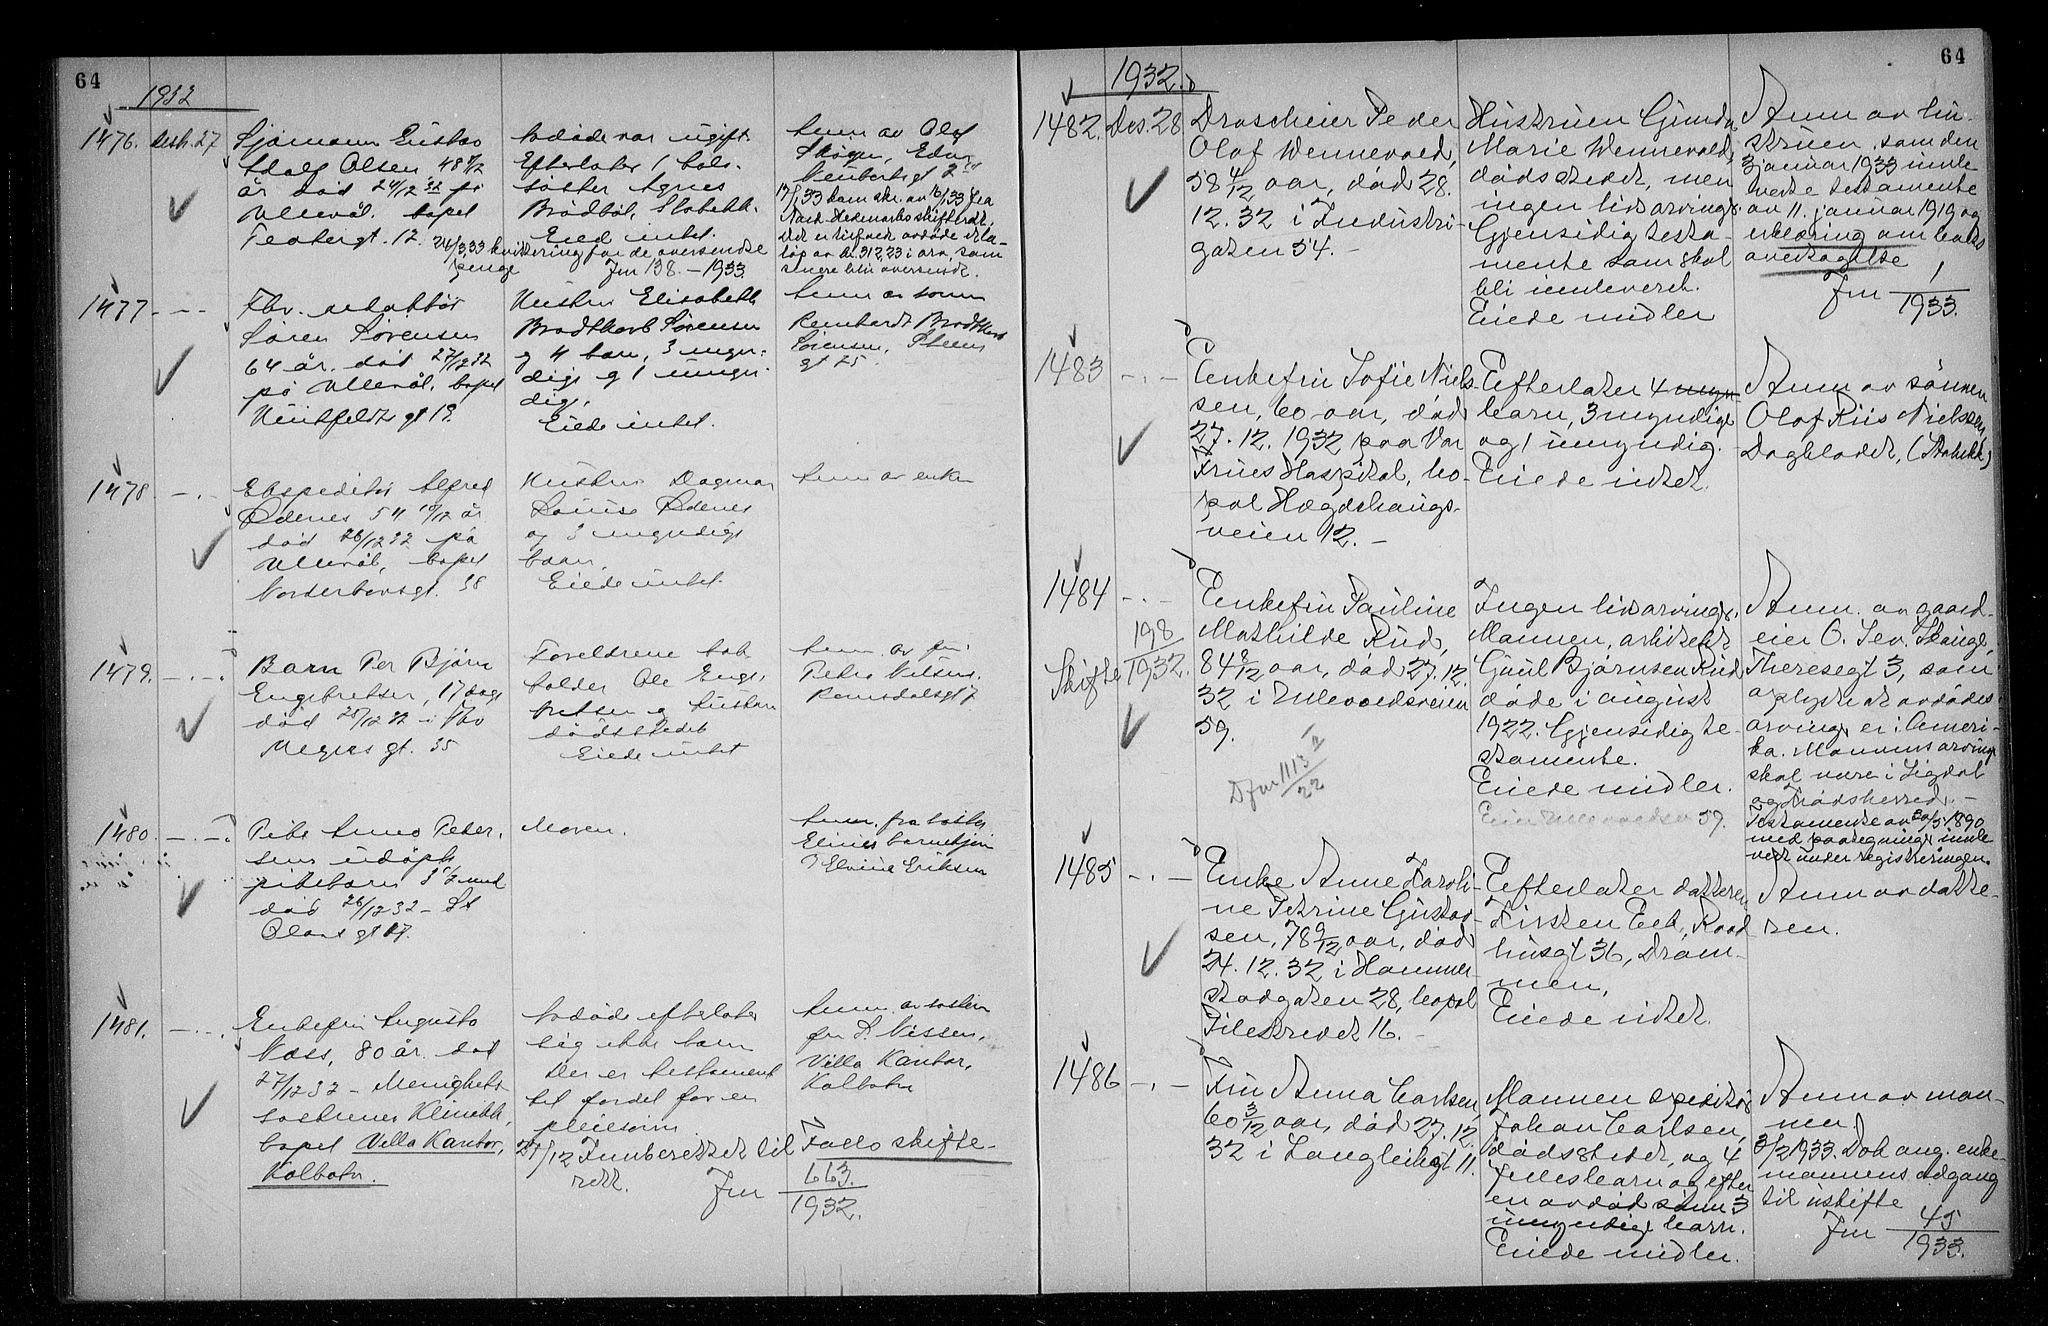 64
1932
1476. Desb. 27
Sjømann Gustav
Adolf Olsen, 48
år død 24/12 32 på
Ullevål. bopel
Teatergt. 12.
Avdøde var ugift.
Efterlater 1 halv-
søster Agnes
Brådbøl, Slobekk.
Eied intet.
24/3 33 kvittering for de oversendte
penge Jnr 138. – 1933
Anm av Olaf
Skogen, Edv.
17/1 33 kom skr. av 16/1 33 fra
Nord-Hedmark skifterett,
det er tilfalt avdøde et be-
løp av kr. 312,23 i arv, som
senere blir oversendt.
1477 – - –
Fhv. redaktør
Søren Sørensen
64 år. død 27/12 32
på Ullevål, bopel
Huitfeldts gt 19.
Hustru Elisabeth
Brodtkorb Sørensen
og 4 barn, 3 myn-
dige og 1 umyn-
dig.
Eiede intet.
Anm av sønn
Reinhardt Brodtkorb
Sørensen, Steens
gt 25.
1478 – . –
Ekspeditør Alfred
Ødenes 54 10/12 år
død 26/12 32 på
Ullevål, bopel
Vorderhovsgt. 38
Hustru Dagmar
Louise Ødenes
og 3 umyndige
barn.
Eiede intet.
Anm av enken
1479. – . –
Barn Per Bjørn
Engebretsen, 17 dage
død 25/12 32 i Thv
Meyers gt. 35
Foreldrene
Ole Enge-
bretsen og hustru
dødsstedet
Eiede intet
Anm av fru
Petra Nilsen,
Romsdalsgt 7
1480. – . –
Pike Anna Peter-
sens udøpte
pikebarn 3 1/2 mnd
død 26/12 32 – St
Olavs gt
Moren.
Anm. fra søster
Elines barnehjem
v Elvine Eriksen
1481. – . –
Enkefru Augusta
Næss, 80 år. død
27/12 32 – Menighets
søstrenes Klinikk,
bopel Villa Kantor,
Kolbotn.
Avdøde efterlater
sig ikke barn
Der er testament
til fordel for en
pleiesønn
29/12 Innberettet til Follo skifte-
rett. Jnr 663.
1932.
Anm. av søsteren
fru S. Nissen,
Villa Kantor,
Kolbotn
64
1932.
1482. Des. 28
Droscheeier Peder
Olaf Wennevold,
58 4/12 aar, død 28.
12. 32 i Industri-
gaten 54. –
Hustruen Gunda
Marie Wennevold,
dødsstedet, men
ingen livsarvinger.
Gjensidig testa-
mente som skal
bli innlevert.
Eiede midler
Anm av hu-
struen, som den
3 januar 1933 innle-
verte testamente
av 11. januar 1919 og
erklæring om boets
overtagelse
Jnr 1
1933.
1483 – . –
Enkefru Sofie Niels-
sen, 60 aar, død
27. 12. 1932 paa Vor
Frues Hospital, bo-
pæl Hægdehaugs-
veien 12. –
Efterlater 4 myn
barn, 3 myndige
og 1 umyndig.
Eiede intet.
Anm av sønnen
Olaf Riis Nielssen
Dagbladet, (Stabekk)
1484 – . –
198
Skifte 1932.
Enkefru Pauline
Mathilde Rud,
84 8/12 aar, død 27. 12.
32 i Ullevoldsveien
59.
Djnr 1113 II
22
Ingen livsarvinger.
Mannen, arkitekt
Gaul Bjørnsen Rud
døde i august
1922. Gjensidig te-
stamente.
Eiede midler.
Eier Ullevoldsv 59.
Anm. av gaard-
eier O. Sev. Skaugl,
Theresegt 3, som
oplyste at avdødes
arvinger er i Ameri-
ka. Mannens arvinger
skal være i Sigdal
og Krødsherred. –
Testamente av 20/5 1890
med paategninger innle-
vert under registreringen.
1485 – . –
Enke Anne Karoli-
ne Petrine Gustav-
sen, 78 9/12 aar, død
24. 12. 32 i Hammer-
stadgaten 28, bopæl
Pilestredet 16. –
Efterlater datteren
Kirsten Eek, Raad-
husgt 36, Dram-
men,
Eiede intet.
Anm av datte-
ren.
1486 – . –
Fru Anna Carlsen,
60 3/12 aar, død 27. 12.
32 i Langleikgt 11.
Mannen speditør
Johan Carlsen,
dødsstedet, og 4
fellesbarn og efter
en avdød sønn 3
umyndige barn.
Eiede midler.
Anm av man-
nen
3/2 1933. Dok ang. enke-
mannens adgang
til uskifte
Jnr 45
1933.